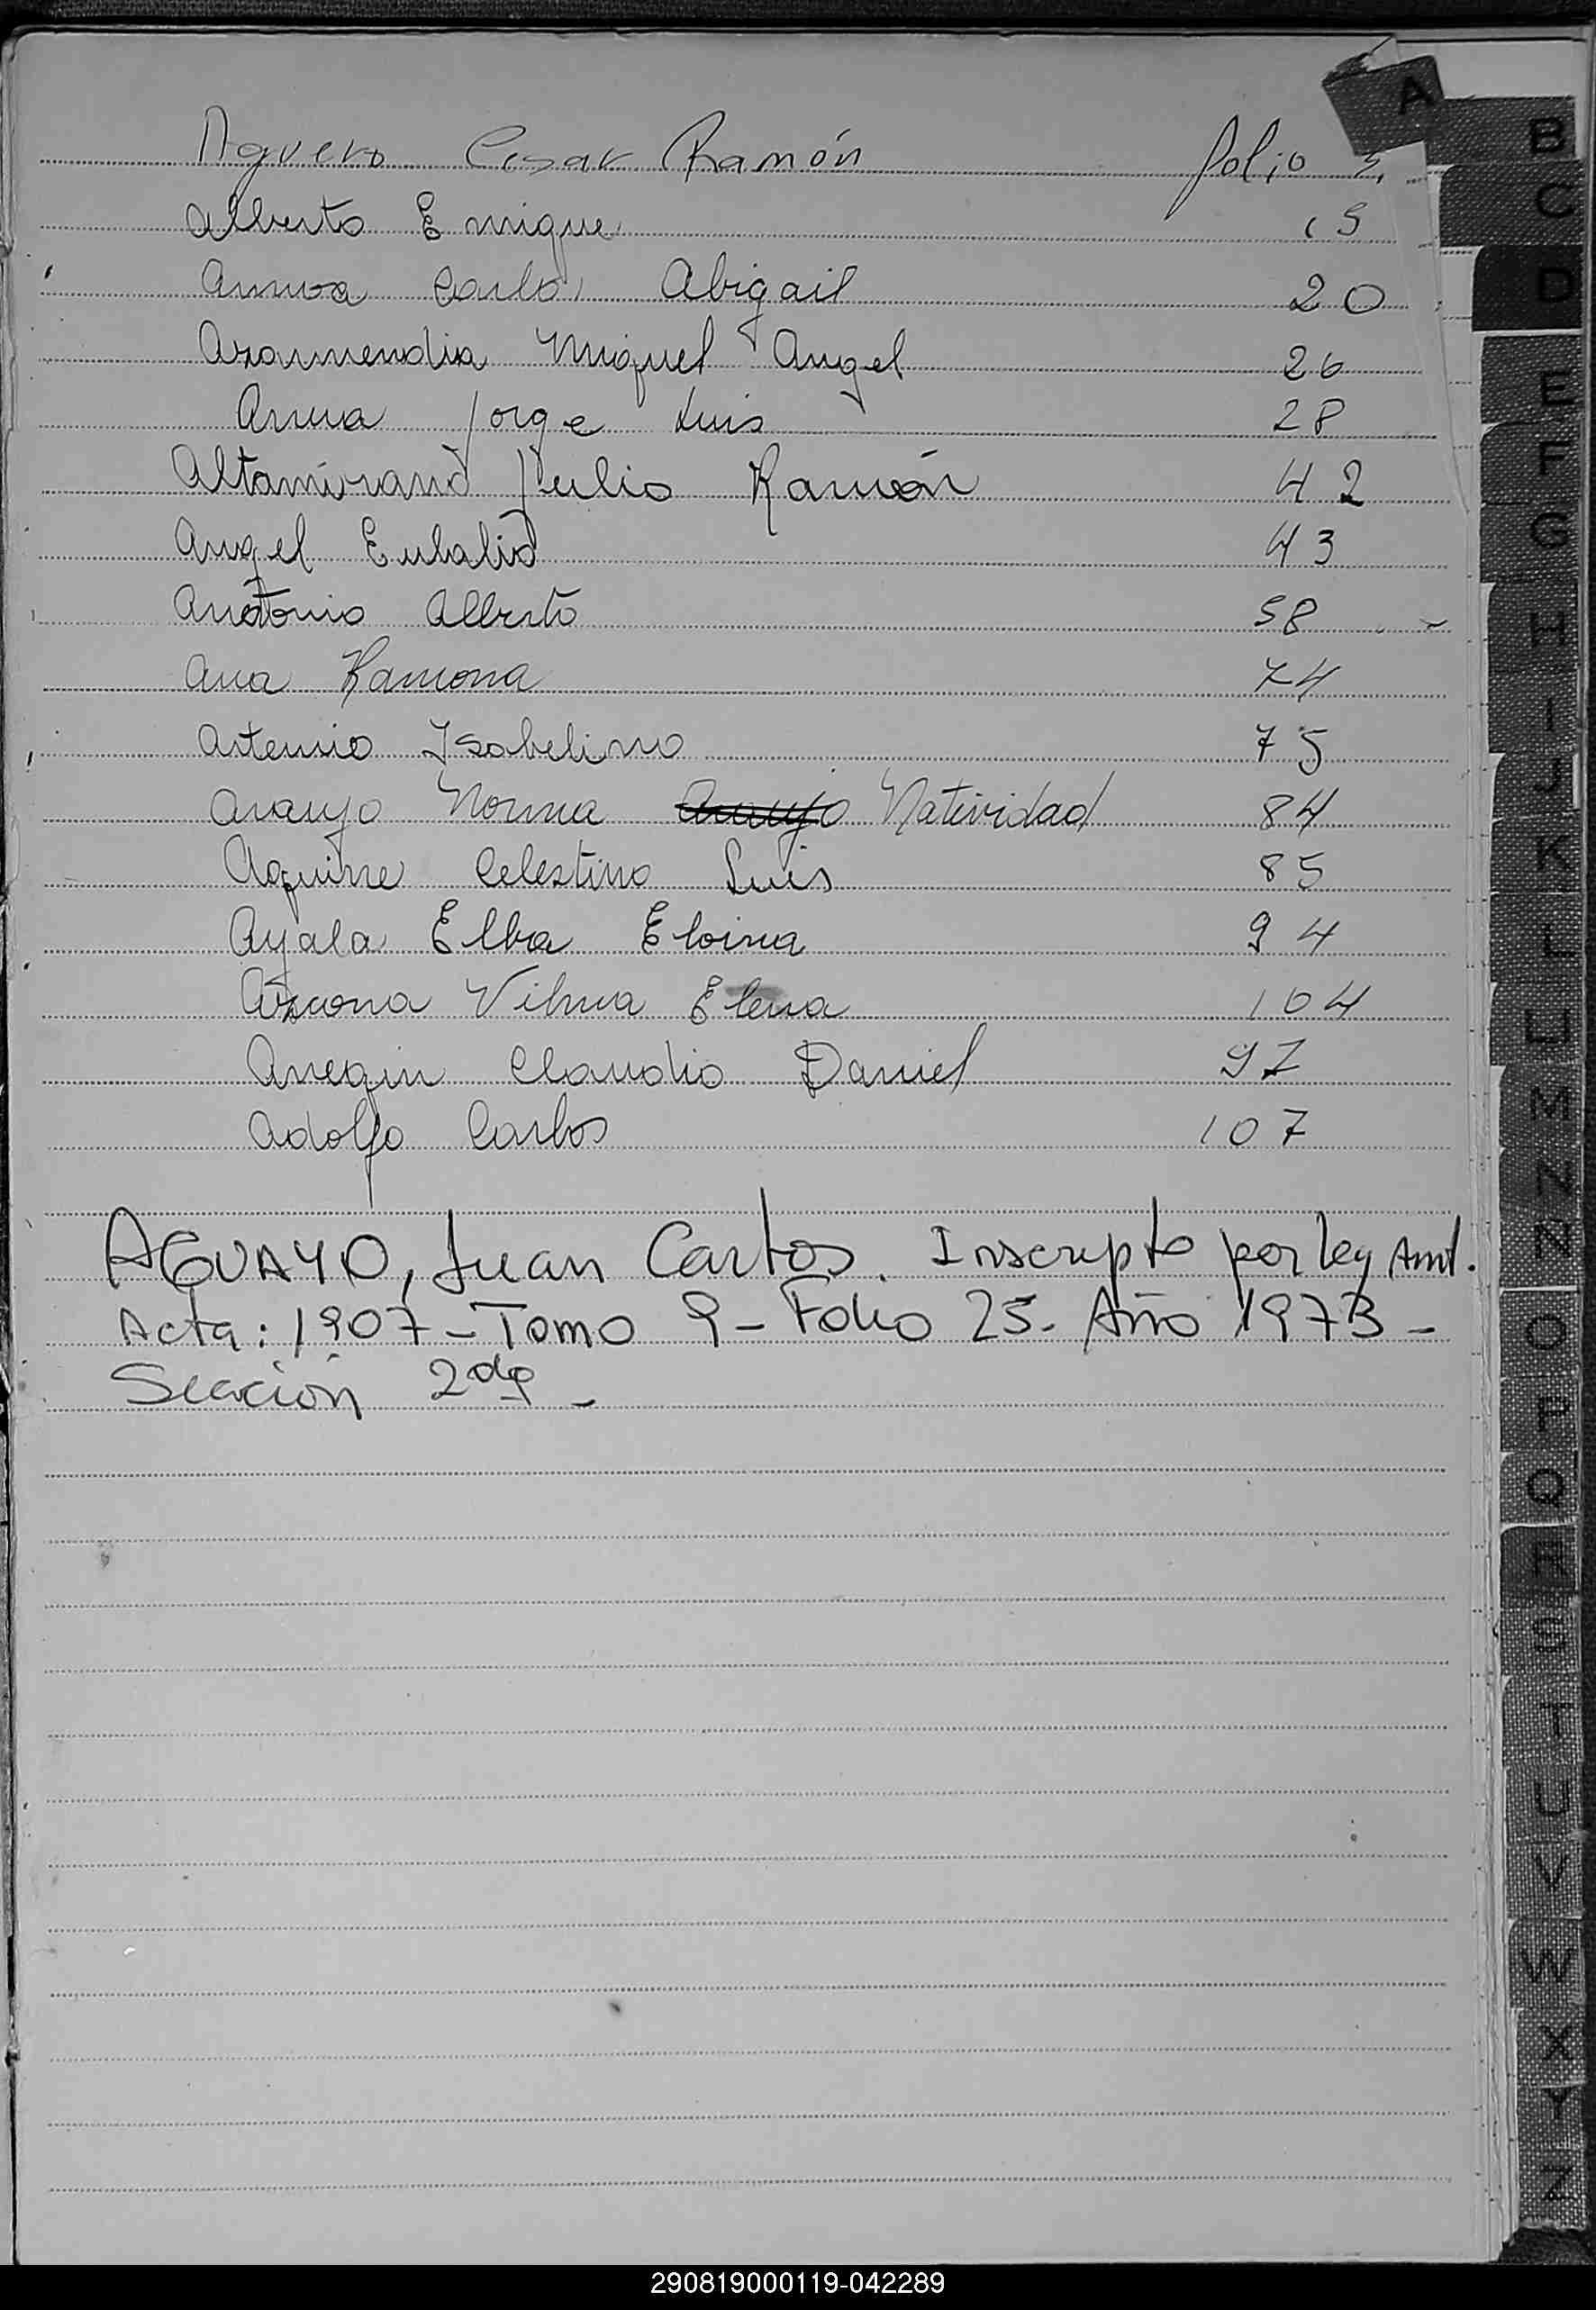 Aguero Cesar Ramón folio 3.
Alberto Enrique 15
Carlos Abigail 20
Azarmendia Miguel Angel 26
Jorge Luis 28
Altamirano Julio Ramón 42
Angel Eulalio 43
Antonio Alberto 58
Ana Ramona 74
Artemio Isabelino 75
Araujo Norma Araujo Natividad 84
Aguirre Celestino Luis 85
Ayala Elba Eloina 94
Azcona Vilma Elena 104
Arregin Claudio Daniel 97
Adolfo Carlos 107
AGUAYO, Juan Carlos. Inscripto por ley Amt.
Acta: 1907 - Tomo 9 - Folio 25. Año 1973 -
Sección 2da -
A
B
C
D
E
F
G
H
I
J
K
L
LL
M
N
Ñ
O
P
Q
R
S
T
U
V
W
X
Y
Z
290819000119-042289